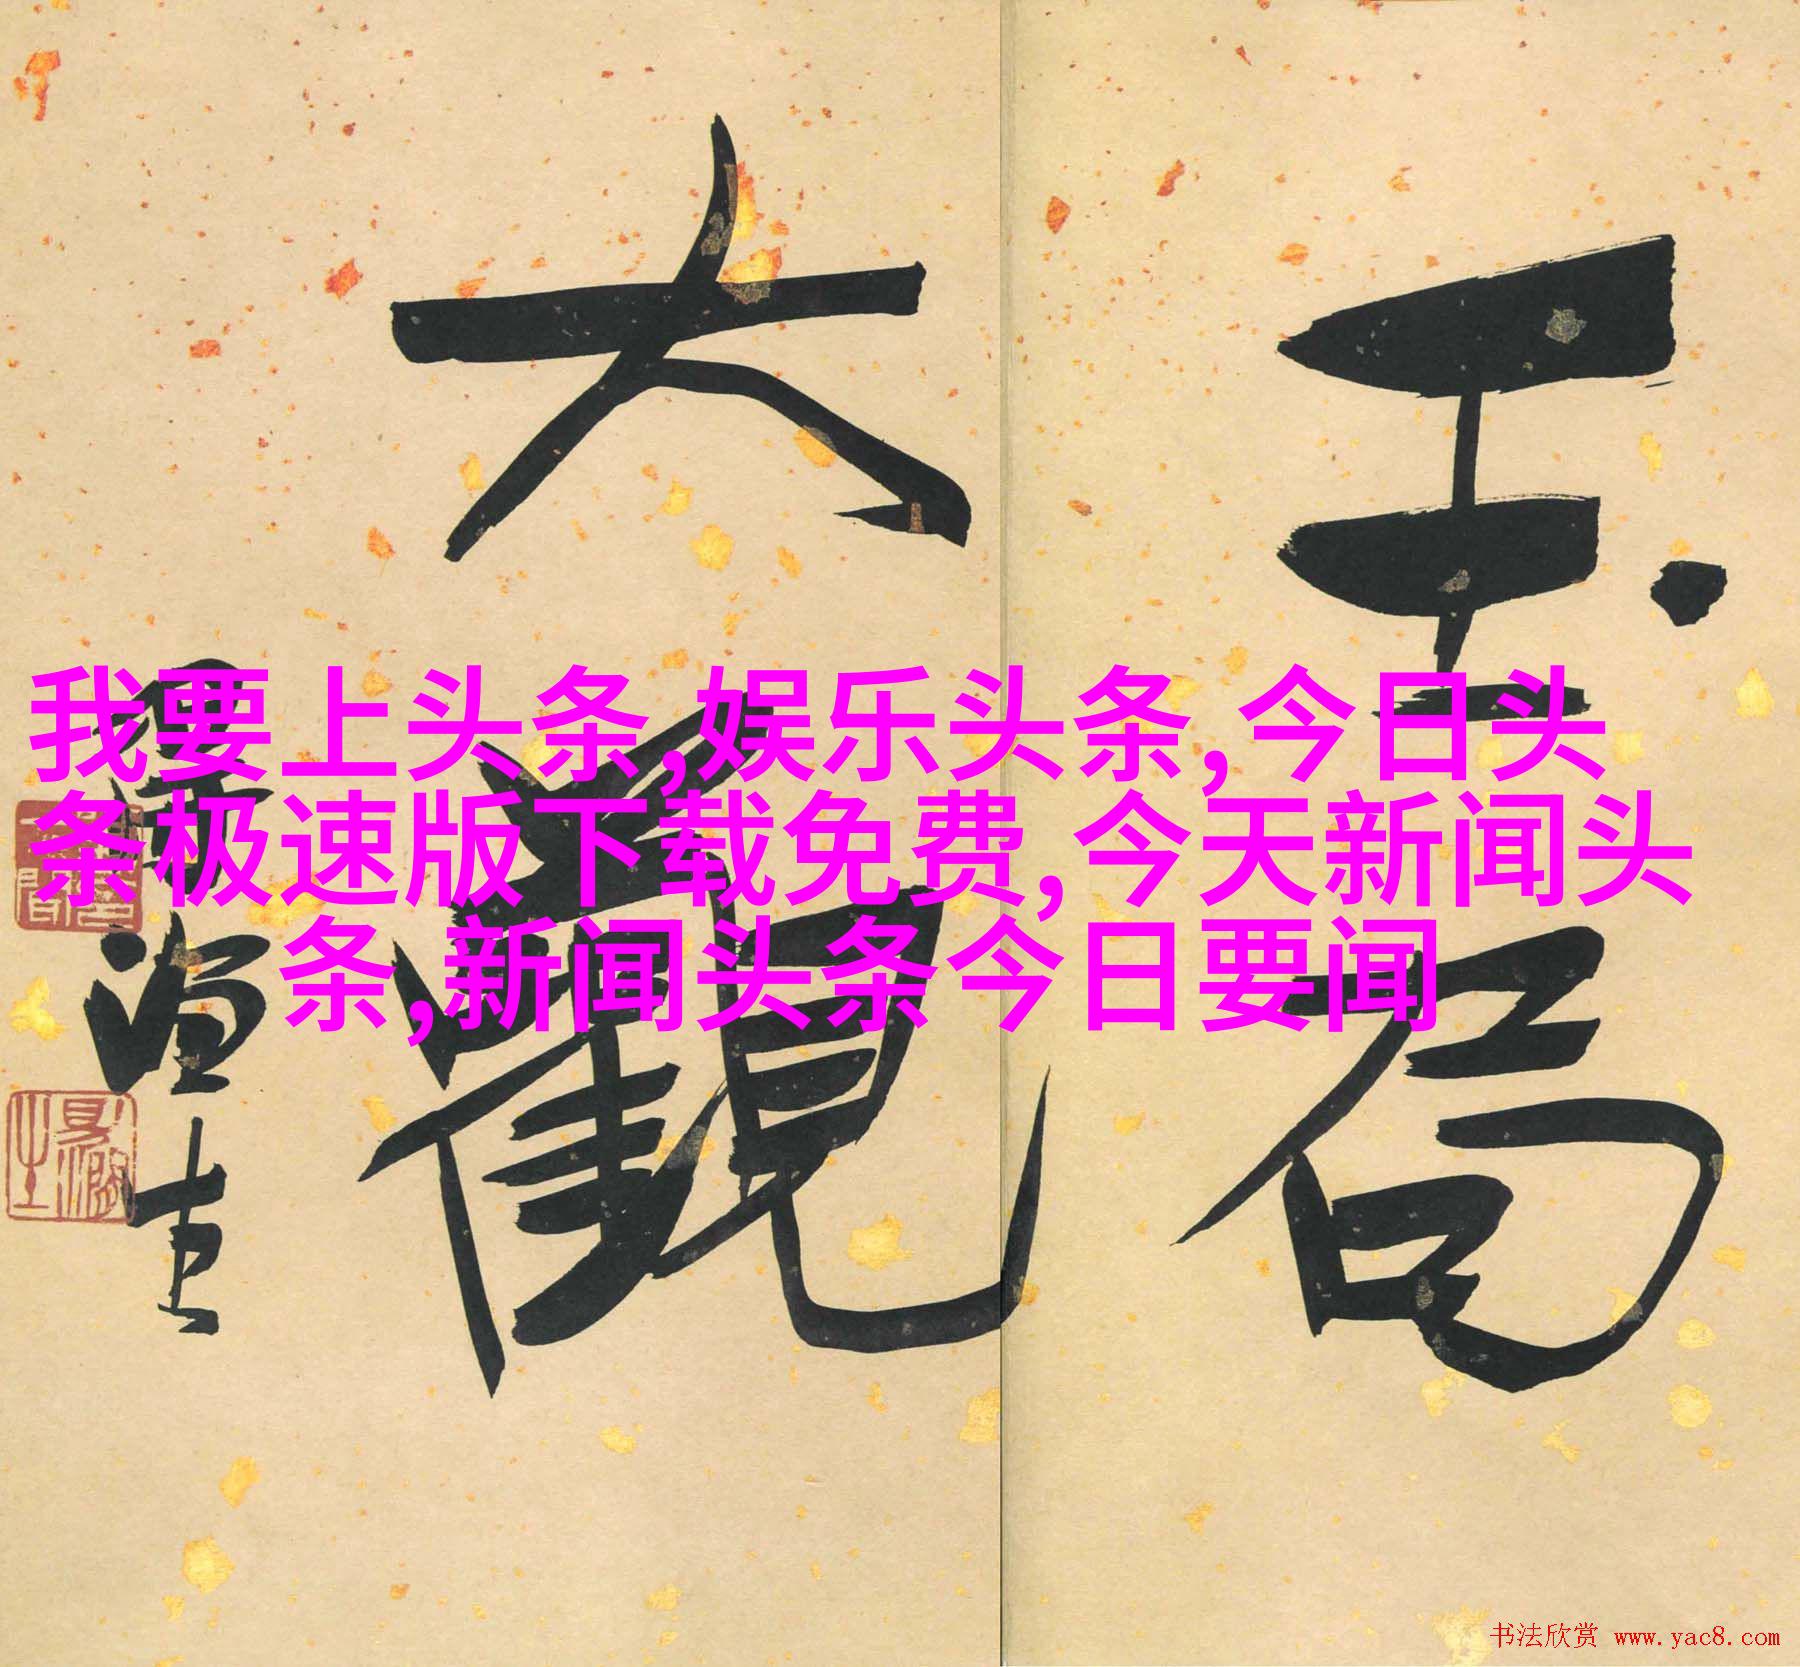 我要上头条,娱乐头条,今日头
条极速版下载免费,今天新闻头
条,新闻头条今日要闻
玉局
大觀
书法欣赏 www.yac8.com